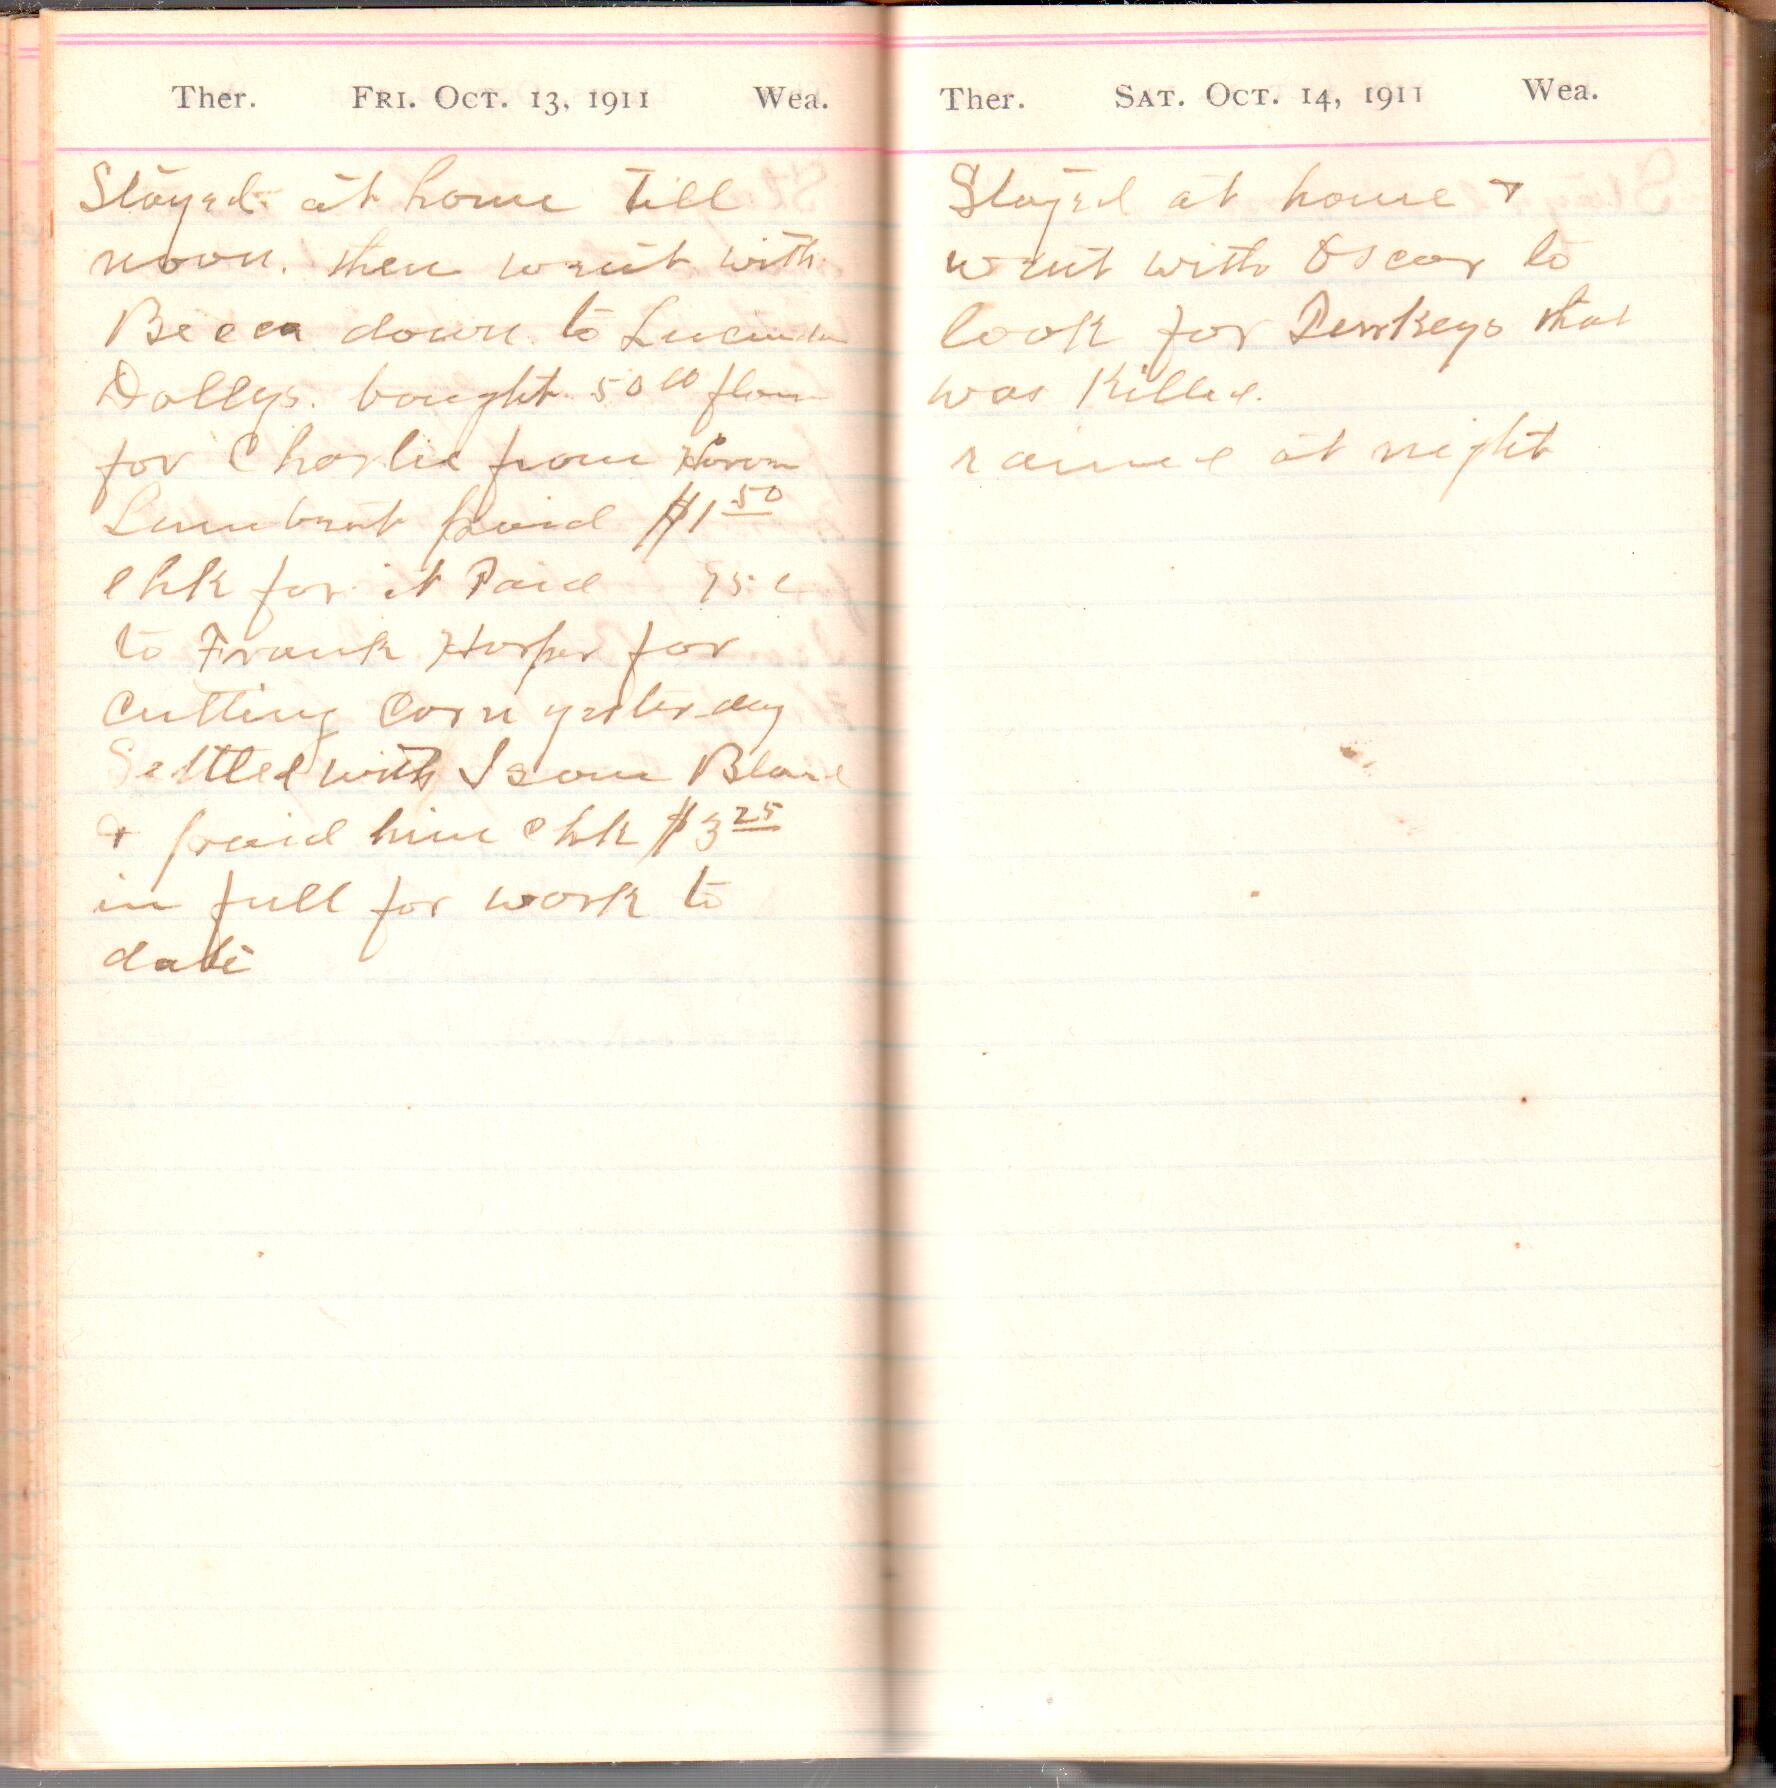 Ther. FRI. OCT. 13, 1911 Wea.
Stayed at home till
noon. then went with
Becca down to Lucinda
Dollys. bought 50 flour
for Charlie from
Lambert paid $1 50
chk for it Paid 75 c
to Frank Harper for
cutting Corn yesterday
Settled with Isom
& paid him chk $3 25
in full for work to
date
Ther. SAT. OCT. 14, 1911 Wea.
Stayed at home &
went with Oscar to
look for that
was Killed.
rained at night